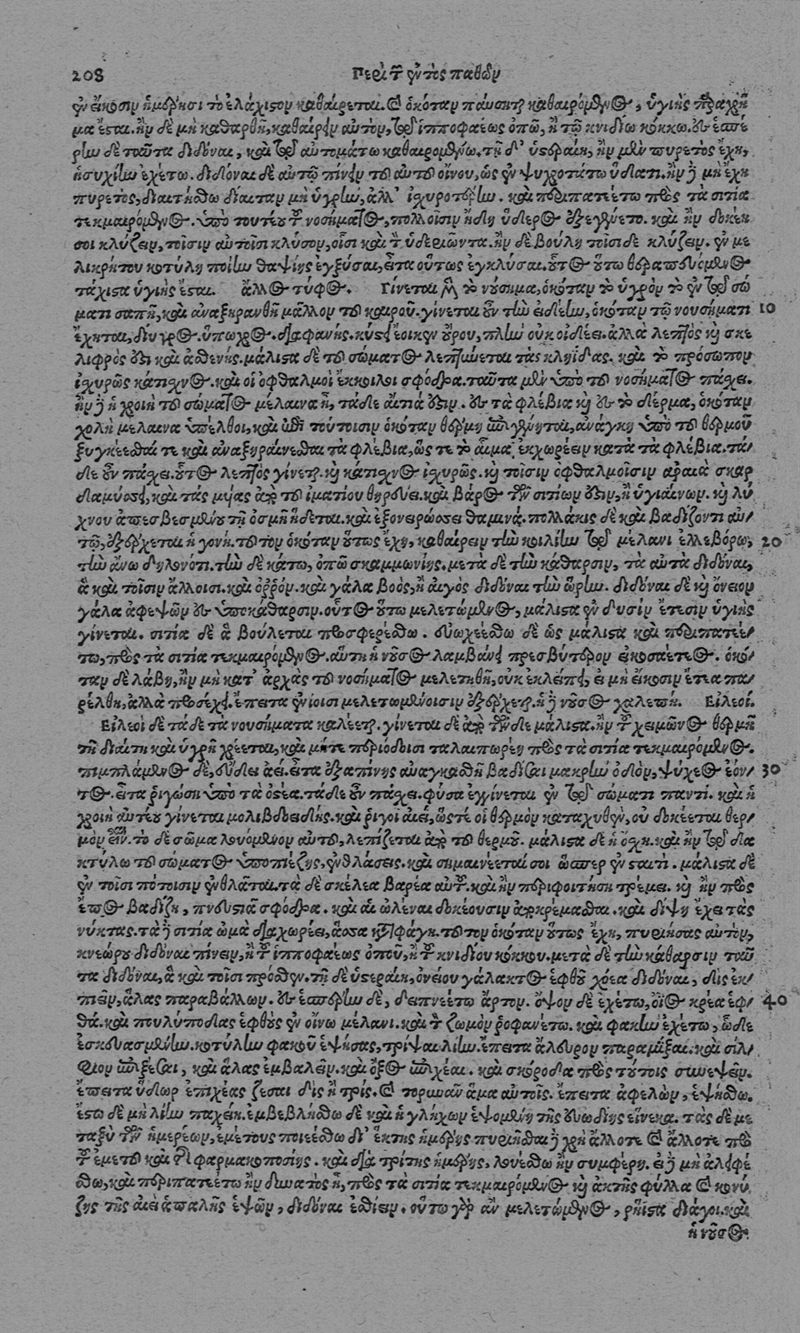 208 Περὶ τῶν ἐντὸς παθῶν
ἐν εἴκοσιν ἡμέρῃσι τὸ ἐλάχιστον καθαίρεται. καὶ ὁκόταν παύσηται καθαιρόμενος, ὑγιὴς παραχρῆ
μα ἔσται. ἢν δὲ μὴ καθαρθῇ, καθαίρειν αὐτὸν, τῷ ἱπποφαέως ὀπῷ, ἢ τῷ κνιδίῳ κόκκῳ. ἐς ἑσπέ
ρην δὲ ταῦτα διδόναι, καὶ τῷ αὐτομάτῳ καθαιρομένῳ. τῇ δ' ὑστεραίῃ, ἢν μὲν πυρετὸς ἔχῃ,
ἡσυχίην ἐχέτω. διδόναι δὲ αὐτῷ πίνειν τοῦ αὐτοῦ οἴνου, ὡς ἐν ψυχροτάτῳ ὕδατι. ἢν δὲ μὴ ἔχῃ
πυρετὸς, διαιτήσθω δίαιταν μὴ ὑγρὴν, ἀλλ' ἰσχυροτέρην. καὶ περιπατείτω πρὸς τὰ σιτία
τεκμαιρόμενος. ὑπὸ τουτέου τοῦ νοσήματος, πολλοῖσιν ἤδη ὕδερος ἐξεγένετο. καὶ ἢν δοκέῃ
σοι κλύζειν, τοῖσιν αὐτοῖσι κλύσον, οἷσι καὶ τὸν ὑδεριῶντα. ἢν δὲ βούλῃ τοῖσι δὲ κλύζειν. ἐν με
λικρήτου κοτύλῃ ποίην θαψίης ἐγξύσαι, εἶτα οὕτως ἐγκλύσαι. οὗτος οὕτω θεραπευόμενος
τάχιστα ὑγιὴς ἔσται. ἄλλος τύφος. Γίνεται μὲν τὸ νούσημα, ὁκόταν τὸ ὑγρὸν τὸ ἐν τῷ σώ
ματι σαπῇ, καὶ ἀναξηρανθῇ μᾶλλον τοῦ καιροῦ. γίνεται οὖν τὴν ἰδέην, ὁκόταν τῷ νουσήματι 10
ἔχηται, δίυγρος. ὕπωχρος. διαφανὴς. κύστει ἐοικὼς οὔρου, πλὴν οὐκ οἰδέει. ἀλλὰ λεπτὸς καὶ σκε
λιφρός ἐστι καὶ ἀσθενής. μάλιστα δὲ τοῦ σώματος λεπτύνεται τὰς κληῖδας. καὶ τὸ πρόσωπον
ἰσχυρῶς κάτισχνος. καὶ οἱ ὀφθαλμοὶ ἔκκοιλοι σφόδρα. ταῦτα μὲν ὑπὸ τοῦ νοσήματος πάσχει.
ἢν δὲ ἡ χροιὴ τοῦ σώματος μέλαινα ᾖ, τάδε αἴτιά ἐστιν. ἐς τὰ φλέβια καὶ ἐς τὸ δέρμα, ὁκόταν
χολὴ μέλαινα ὑπέλθοι, καὶ ἐπὶ τούτοισιν ὁκόταν θέρμη ἐπιγένηται, ἀνάγκη ὑπὸ τοῦ θερμοῦ
ξυγκέεσθαί τε καὶ ἀναξηραίνεσθαι τὰ φλέβια, ὥς τε τὸ αἷμα ἐκχωρέειν κατὰ τὰ φλέβια. τά-
δε οὖν πάσχει. οὗτος λεπτὸς γίνεται καὶ κάτισχνος ἰσχυρῶς. καὶ τοῖσιν ὀφθαλμοῖσιν ἀραιὰ σκαρ
δαμύσσει, καὶ τὰς μυίας ἀπὸ τοῦ ἱματίου θηρεύει. καὶ βορὸς τῶν σιτίων ἐστὶν, ἢ ὑγιαίνων. καὶ λύ
χνου ἀπεσβεσμένου τῇ ὀσμῇ ἥδεται. καὶ ἐξονειρώσσει θαμινά. πολλάκις δὲ καὶ βαδίζοντι αὐ-
τῷ, ἐξέρχεται ἡ γονή. τοῦτον ὁκόταν οὕτως ἔχῃ, καθαίρειν τὴν κοιλίην τῷ μέλανι ἐλλεβόρῳ, 20
τὴν ἄνω δηλονότι. τὴν δὲ κάτω, ὀπῷ σκαμμωνίης. μετὰ δὲ τὴν κάθαρσιν, τὰ αὐτὰ διδόναι,
ἃ καὶ τοῖσιν ἄλλοισι. καὶ ὀρρόν. καὶ γάλα βοὸς, ἢ αἰγὸς διδόναι τὴν ὥρην. διδόναι δὲ καὶ ὄνειον
γάλα ἀφεψῶν ἐς ὑποκάθαρσιν. οὗτος οὕτω μελετώμενος, μάλιστα ἐν δυσὶν ἔτεσιν ὑγιὴς
γίνεται. σιτία δὲ ἃ βούλεται προσφερέσθω. εὐωχείσθω δὲ ὡς μάλιστα καὶ περιπατεί-
τω, πρὸς τὰ σιτία τεκμαιρόμενος. αὕτη ἡ νοῦσος λαμβάνει πρεσβύτερον εἰκοσαέτεος. ὁκό-
ταν δὲ λάβῃ, ἢν μὴ κατ' ἀρχὰς τοῦ νοσήματος μελετηθῇ, οὐκ ἐκλείπει, εἰ μὴ εἴκοσιν ἔτεα πα-
ρέλθῃ, ἀλλὰ προσέχει. ἔπειτα ἐνίοισι μελετωμένοισιν ἐξέρχεται. ἡ δὲ νοῦσος χαλεπή. Εἰλεοί.
Εἰλεοὶ δὲ τάδε τὰ νουσήματα καλέεται. γίνεται δὲ ἀπὸ τῶνδε μάλιστα. ἢν τοῦ χειμῶνος θερμῇ
τῇ διαίτῃ καὶ ὑγρῇ χρέεται, καὶ μήτε περιόδοισι ταλαιπωρέῃ πρὸς τὰ σιτία τεκμαιρόμενος.
πιμπλάμενος δὲ, εὕδει ἀεί. εἶτα ἐξαπίνης ἀναγκασθῇ βαδίσαι μακρὴν ὁδὸν, ψύχεος ἐόν- 30
τος. εἶτα ῥιγώσῃ ὑπὸ τὰ ὀστέα. τάδε οὖν πάσχει. φῦσα ἐγγίνεται ἐν τῷ σώματι παντί. καὶ ἡ
χροιὴ αὐτέου γίνεται μολιβδοειδής. καὶ ῥιγοῖ ἀεὶ, ὥστε οἱ θερμὸν καταχυθὲν, οὐ δοκέεται θερ-
μὸν εἶναι. τὸ δὲ σῶμα λουόμενον αὐτῷ, λεπίζεται ἀπὸ τοῦ θερμοῦ. μάλιστα δὲ ἡ ὄσχη. καὶ ἢν τῷ δα
κτύλῳ τοῦ σώματος ὑποπιέζῃς, ἐνθλάσεις. καὶ σημανέεταί σοι ὥσπερ ἐν σταιτί. μάλιστα δὲ
ἐν τοῖσι πόποισιν ἐνθλᾶται. τὰ δὲ σκέλεα βαρέα αὐτοῦ. καὶ ἢν περιφοιτήσῃ τρέμει. καὶ ἢν πρὸς
ἔπος βαδίζῃ, πνευστιᾷ σφόδρα. καὶ αἱ ὠλέναι δοκέουσιν ἀποκρέμασθαι. καὶ δίψῃ ἔχει τὰς
νύκτας. τὰ δὲ σιτία ὠμὰ διαχωρέει, ἅσσα καταφάγῃ. τοῦτον ὁκόταν οὕτως ἔχῃ, πυριήσας αὐτὸν,
κνέωρον διδόναι πίνειν, ἢ τοῦ ἱπποφαέως ὀποῦ, ἢ τοῦ κνιδίου κόκκου. μετὰ δὲ τὴν κάθαρσιν ταῦ
τα διδόναι, ἃ καὶ τοῖσι πρόσθεν. τῇ δὲ ὑστεραίῃ, ὀνείου γάλακτος ἑφθοῦ χόεα διδόναι, δὶς ἐκ-
πιεῖν, ἅλας παραβάλλων. ἐς ἑσπέρην δὲ, δειπνείτω ἄρτον. ὄψον δὲ ἐχέτω, ὄϊος κρέα ἑφ- 40
θά. καὶ πουλύποδας ἑφθοὺς ἐν οἴνῳ μέλανι. καὶ τὸν ζωμὸν ῥοφανέτω. καὶ φακὴν ἐχέτω, ὧδε
ἐσκευασμένην. κοτύλην φακοῦ ἑψήσας, τρῖψαι λίην. ἔπειτα ἄλευρον παραμίξαι. καὶ σίλ-
φιον ἐπιξέσαι, καὶ ἅλας ἐμβαλεῖν. καὶ ὄξος ἐπιχέαι. καὶ σκόροδα πρὸς τούτοις συνεψεῖν.
ἔπειτα ὕδωρ ἐπιχέας ζέσαι δὶς ἢ τρίς. καὶ τορυνᾶν ἅμα αὐτοῖς. ἔπειτα ἀφελὼν, ἑψήσθω.
ἔστω δὲ μὴ λίην παχέη. ἐμβεβλήσθω δὲ καὶ ἡ γλήχων ἑψομένη τῆς εὐωδίης εἵνεκα. τὰς δὲ με
ταξὺ τῶν ἡμερέων, ἐμέτους ποιείσθω δι' ἕκτης ἡμέρης πυριῆσθαι δὲ χρὴ ἄλλοτε καὶ ἄλλοτε πρὸ
τοῦ ἐμέτου καὶ τῆς φαρμακοποσίης. καὶ διὰ τρίτης ἡμέρης, λουέσθω ἢν συμφέρῃ. εἰ δὲ μὴ ἀλειφέ
σθω, καὶ περιπατείτω ἢν δυνατὸς ᾖ, πρὸς τὰ σιτία τεκμαιρόμενος καὶ ἀκτῆς φύλλα καὶ κονύ
ζης τῆς ἀεὶ ἁπαλῆς ἑψῶν, διδόναι ἐσθίειν. οὕτω γὰρ ἂν μελετώμενος, ῥήϊστα διάγοι. καὶ
ἡ νοῦσος.